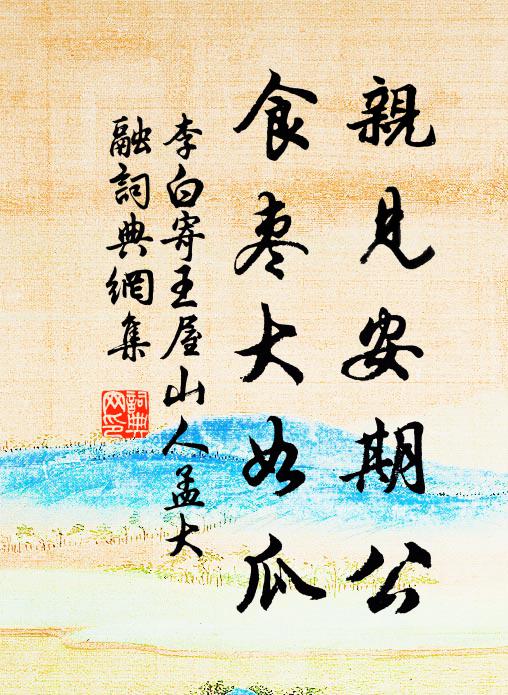 親見安期公
食棗大如瓜
李白寄王屋山人孟大
融詞典網集
詞典
网印